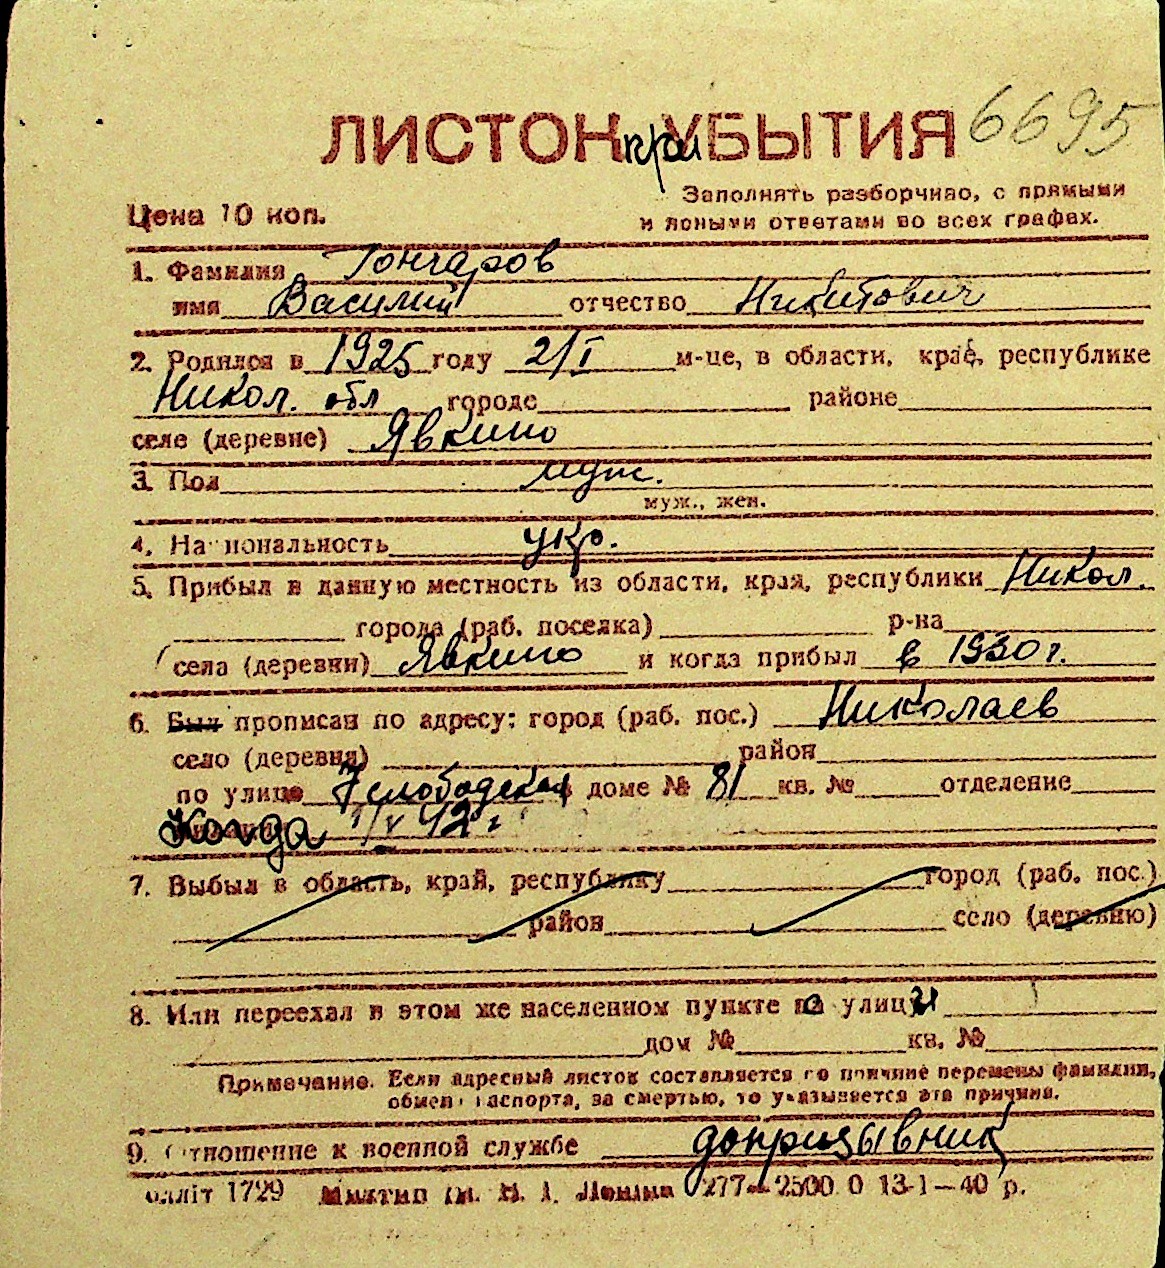 ЛИСТОК при УБЫТИЯ 6695
Заполнять разборчиво, с прямыми
Цена 10 коп. и ясными ответами во всех графах.
1. Фамилия Гончаров
имя Василий отчество Никитович
2. Родился в 1925 году 2/I м-це, в области, крае, республике
Никол. обл городе районе
селе (деревне) Явкино
3. Пол муж.
муж., жен.
4. Национальность укр.
5. Прибыл в данную местность из области, края, республики Никол.
города (раб. поселка) р-на
села (деревни) Явкино и когда прибыл в 1930 г.
6. Был прописан по адресу: город (раб. пос.) Николаев
село (деревня) район
по улице 7 слободская доме № 81 кв. № отделение
Когда 1/V 42 г
7. Выбыл в область, край, республику город (раб. пос.)
район село (деревню)
8. Или переехал в этом же населенном пункте по улицу
дом № кв. №
Примечание. Если адресный листок составляется по причине перемены фамилии,
обмена паспорта, за смертью, то указывается эта причина.
9. Отношение к военной службе допризывник
1729 им. Леніна 277—2500 0 13-1—40 р.